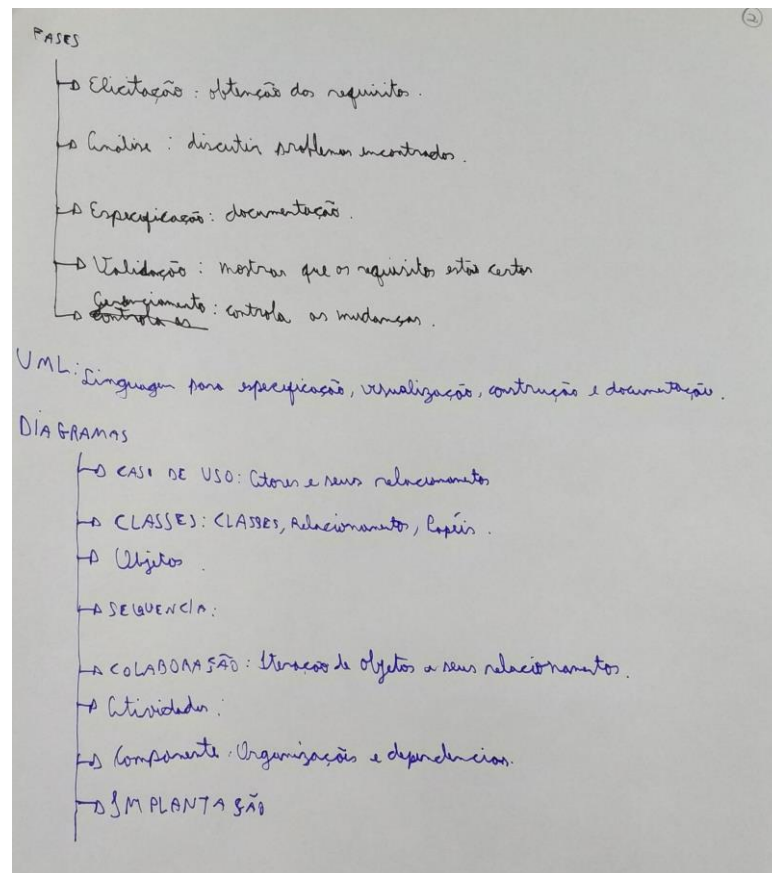 2
FASES
Elicitação: obtenção dos requisitos.
Análise: discutir problemas encontrados.
Especificação: documentação.
Validação: mostrar que os requisitos estão certos
Gerenciamento: controla as mudanças.
controla as
UML: Linguagem para especificação, visualização, construção e documentação.
DIAGRAMAS
CASO DE USO: Atores e seus relacionamentos
CLASSES: CLASSES, Relacionamento, Papéis.
Objetos.
SEQUENCIA:
COLABORAÇÃO: Iteração de Objetos e seus relacionamentos.
Atividades:
Componente: Organizações e dependencias.
IMPLANTAÇÃO